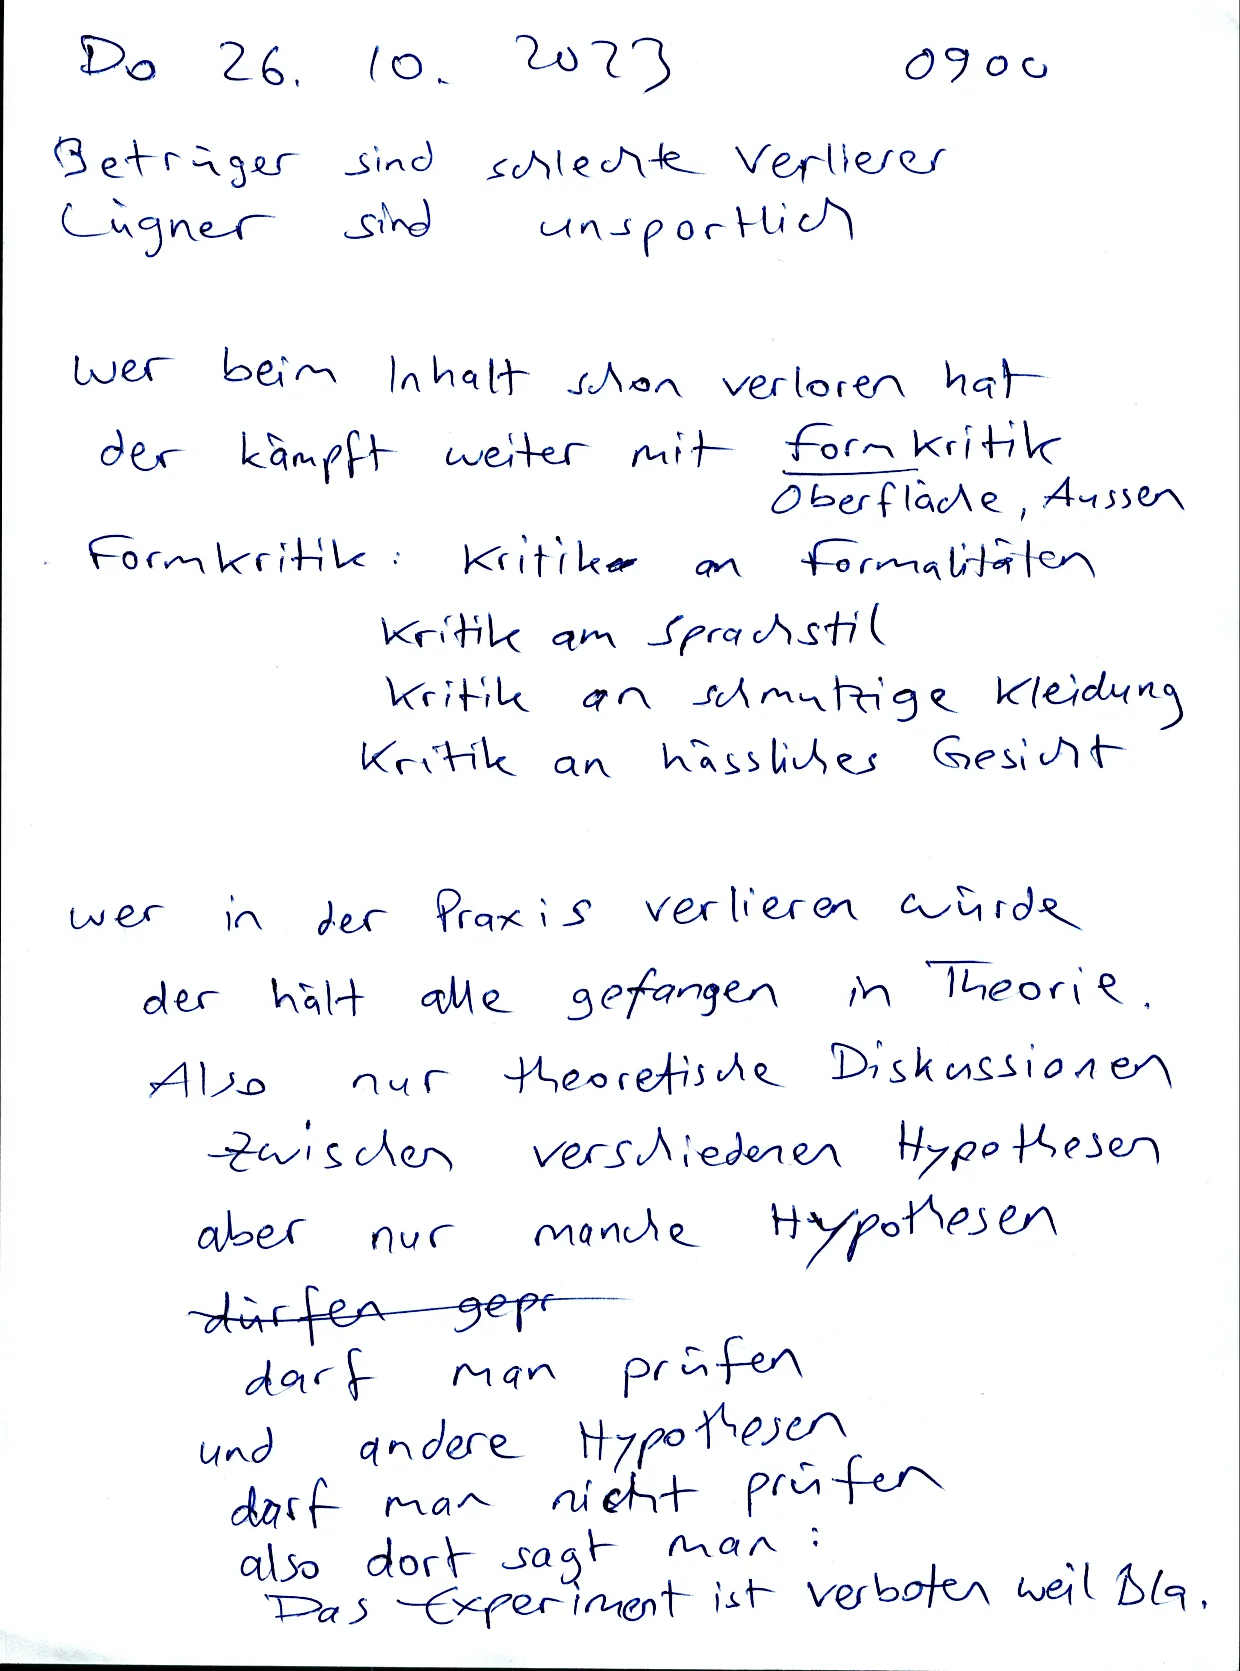 Do 26. 10. 2023 0900
Betrüger sind schlechte Verlierer
Lügner sind unsportlich
wer beim Inhalt schon verloren hat
der kämpft weiter mit Formkritik
Oberfläche, Aussen
Formkritik: Kritik an Formalitäten
Kritik am Sprachstil
Kritik an schmutzige Kleidung
Kritik an hässliches Gesicht
wer in der Praxis verlieren würde
der hält alle gefangen in Theorie.
Also nur theoretische Diskussionen
zwischen verschiedenen Hypothesen
aber nur manche Hypothesen
dürfen gepr
darf man prüfen
und andere Hypothesen
darf man nicht prüfen
also dort sagt man:
Das Experiment ist verboten weil Bla.